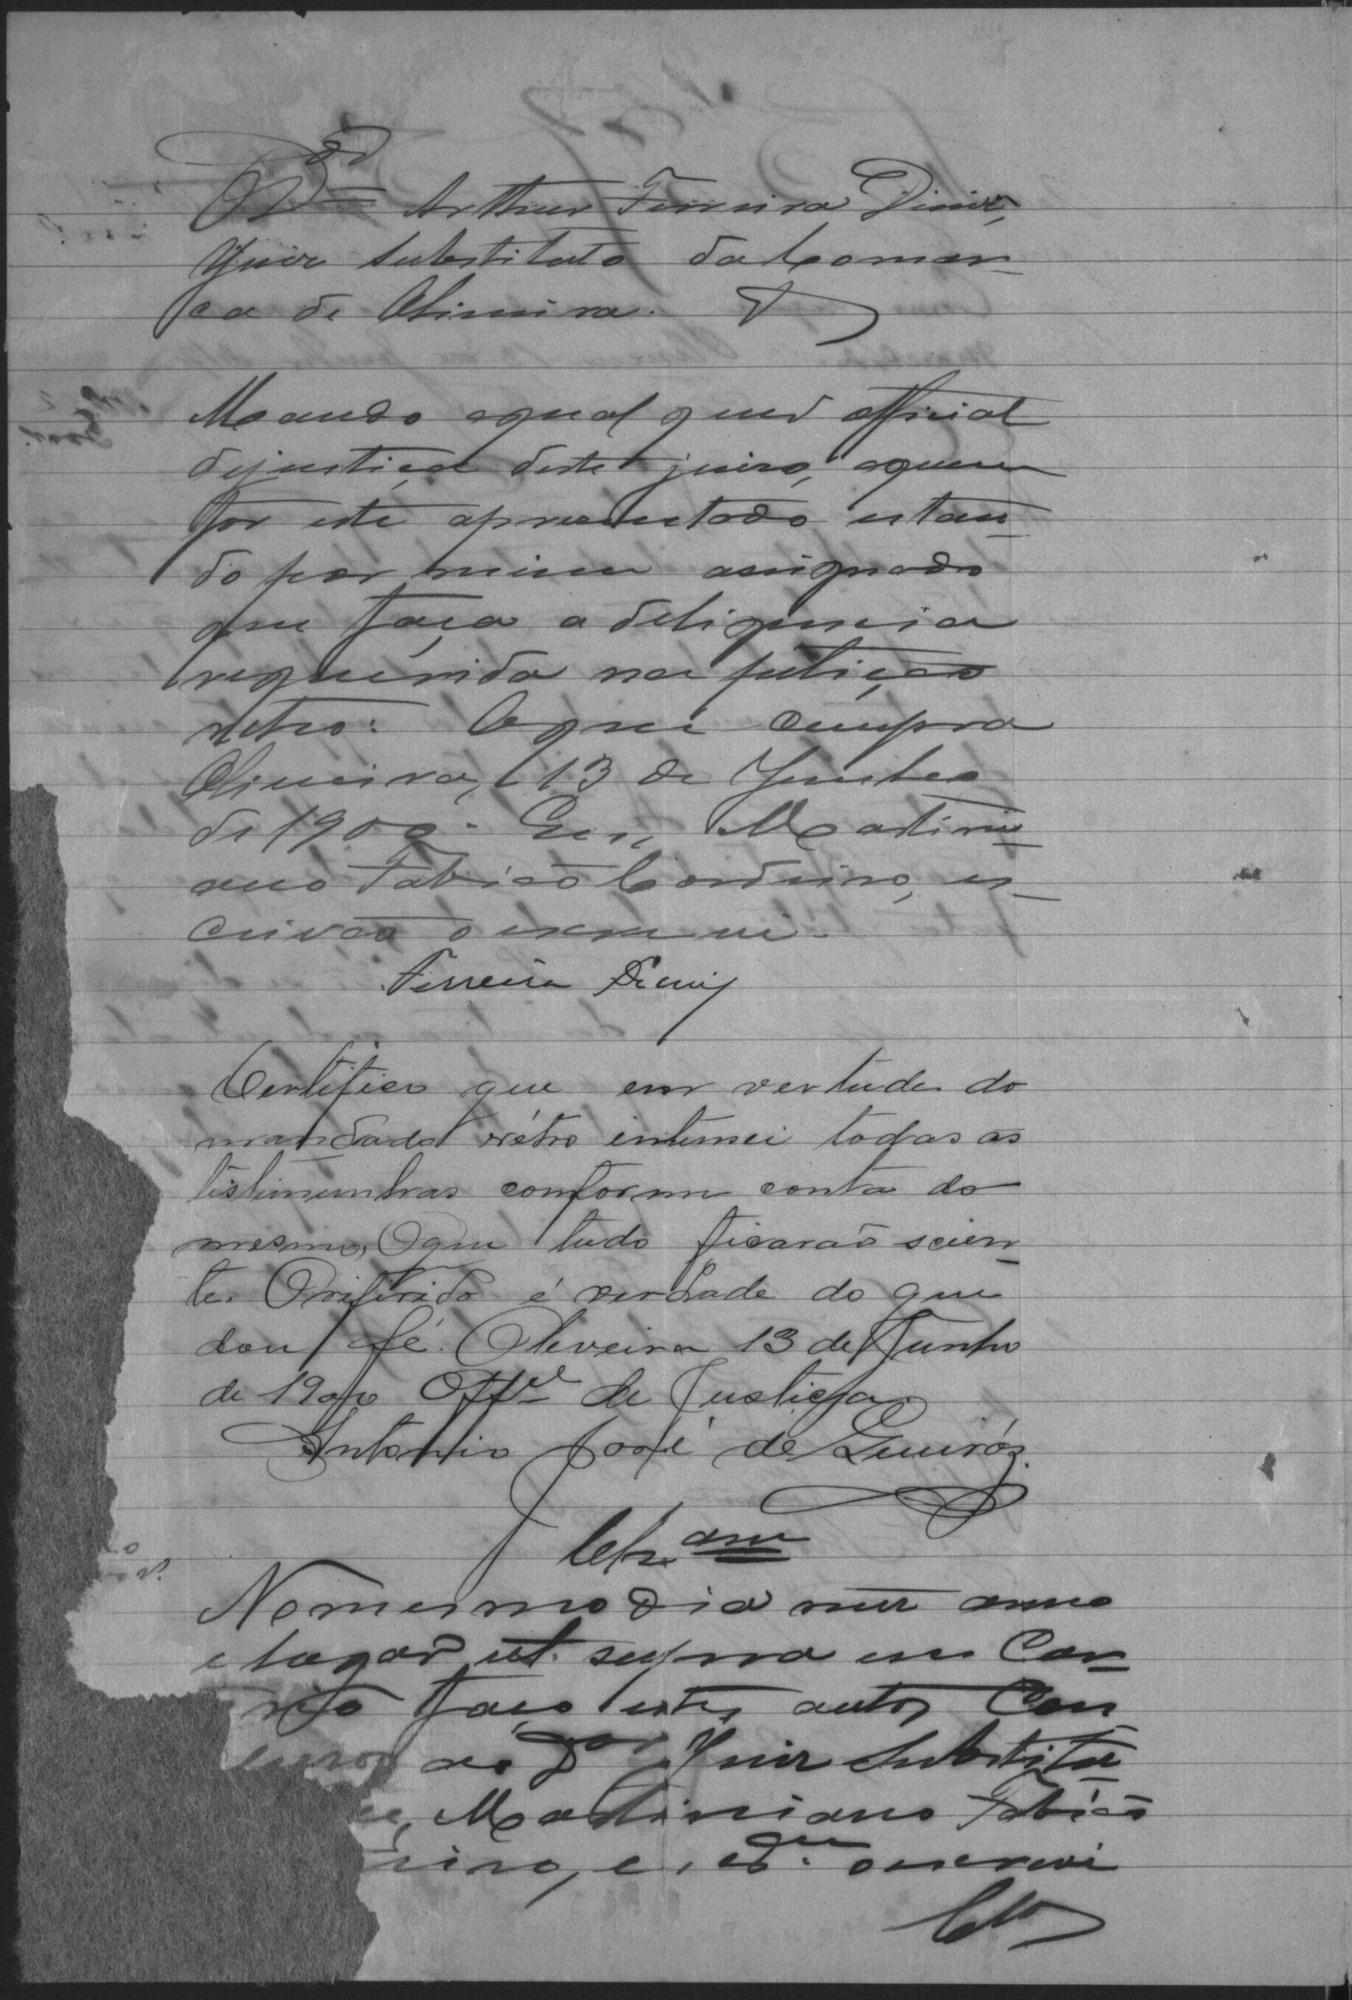 O Dor Arthur Ferreira Diniz,
Juiz Substituto da Comar-
ca de Oliveira.
Mando a qual quer official
de justiça deste juizo, a quem
for este apresentado estan-
do por mim assignado
que faça a deligencia
requerida na petição
retro: O que cumpra
Oliveira, 13 de Junho
de 1900. Eu, Martini-
ano Fabião Cordeiro, es-
crivão o escrevi.
Ferreira Diniz
Certifico que em vertude do
mandado rétro intimei todas as
testimunhas conforme conta do
mesmo, O que tudo ficarão scien-
te. O referido é verdade do que
dou fé. Oliveira 13 de Junho
de 1900 Offel de Justiça
Antonio José de Queiróz.
Clzam
No mesmo dia mez anno
e logar ut supra em Car-
rio faço estes autos Con
cluzos ao Dor Juiz Substitu
Martiniano Fabião
eiro, o escrevi
Clo